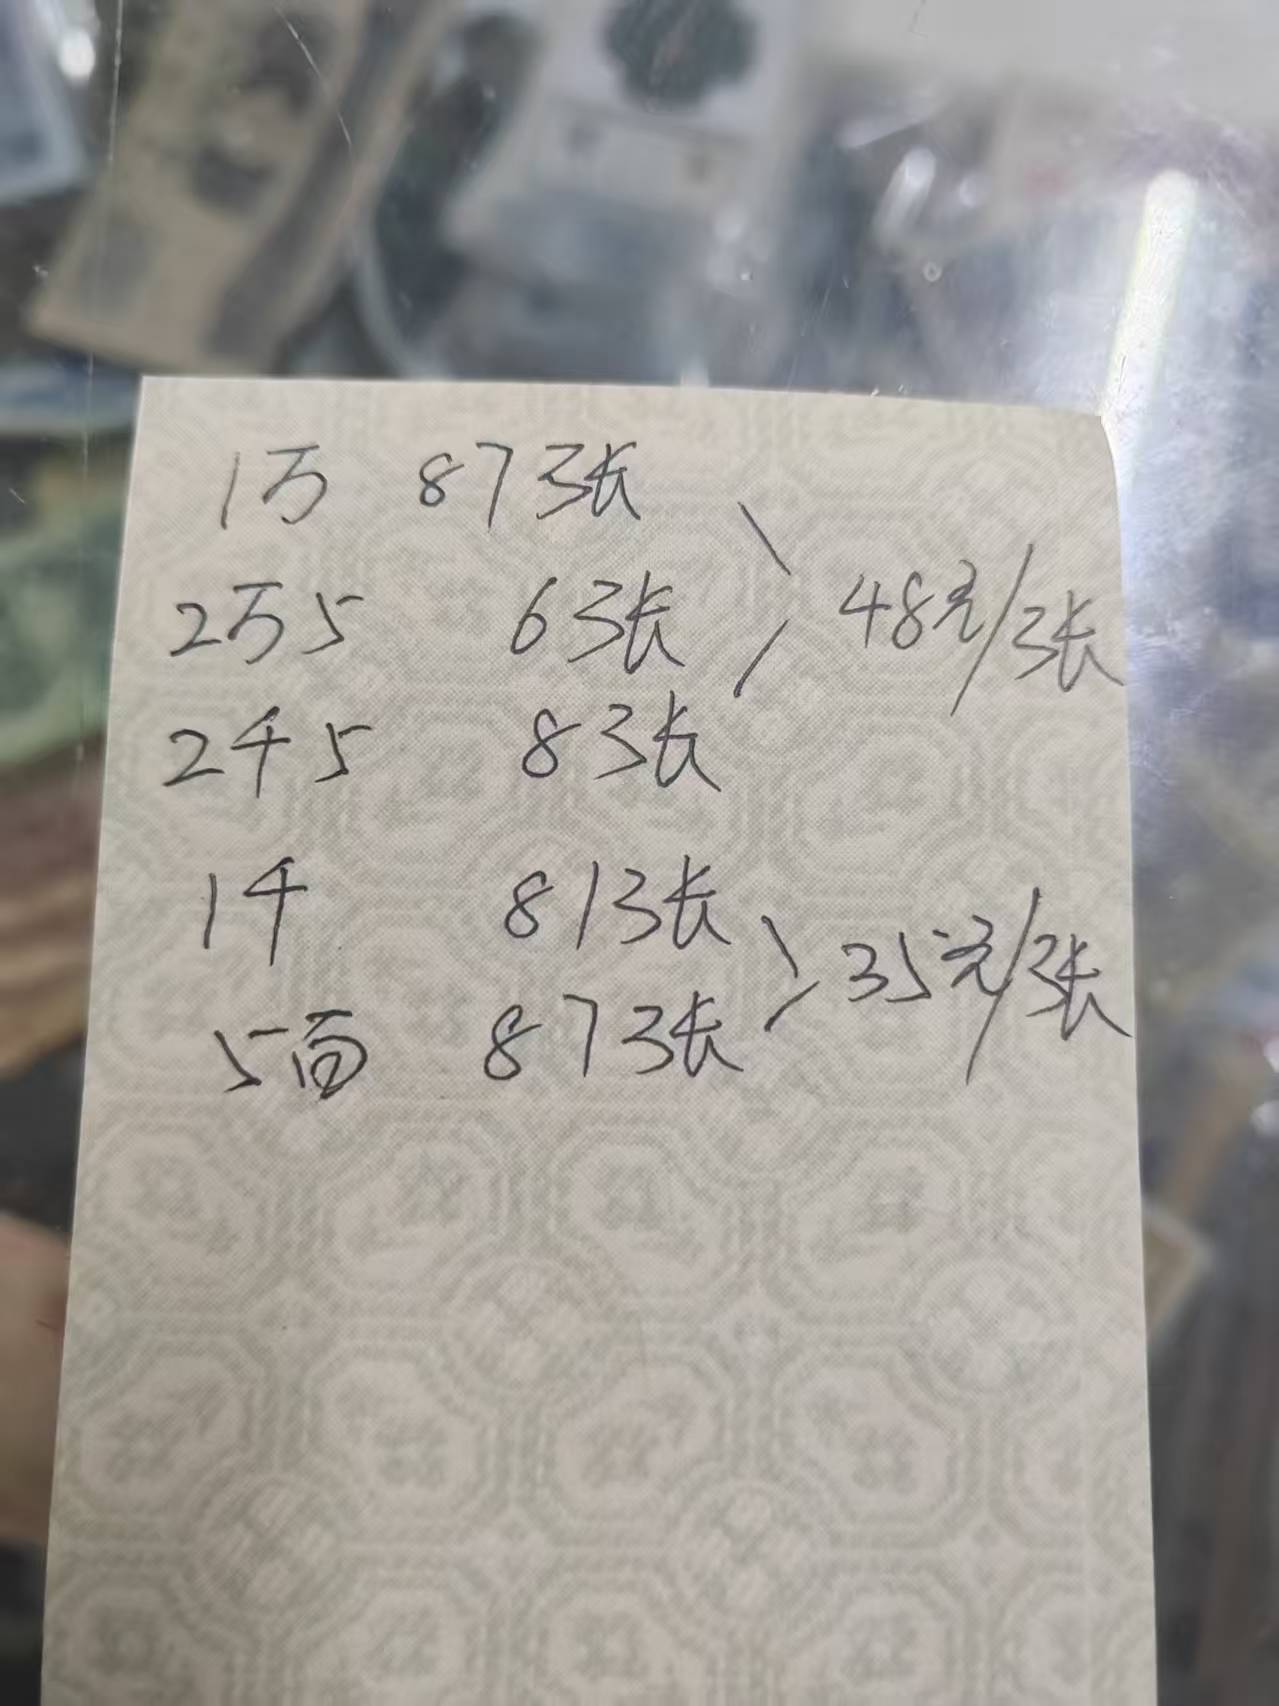 1万 87张
2万5 6张 48元/张
2千5 8张
1千 81张
35元/张
5百 87张